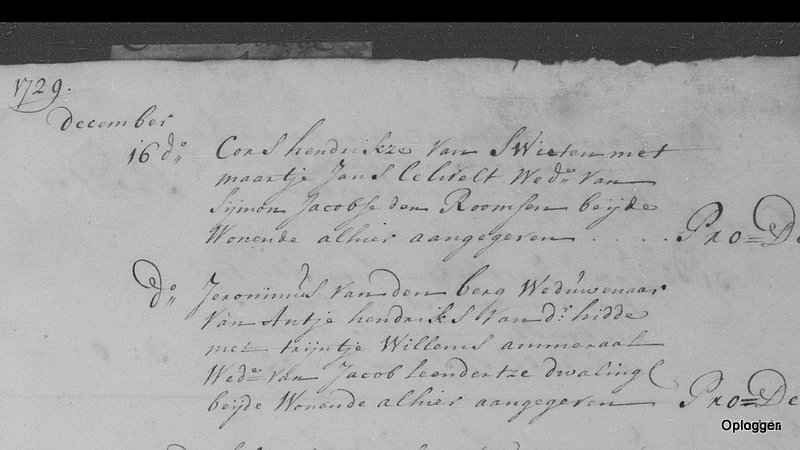 1729.
december
16 do. Cors hendrikze van Swieten met
maartje Jans Wedo. van
Sijmon Jacobse den Roomsen beijde
Wonende alhier aangegeven . . . . . Pro=De
do. Jeronimus van den berg Weduwenaar
van Antje hendriks van dr. hidde
met trijntje Willems ammeraal
Wedo. van Jacob leendertze dwaling
beijde Wonende alhier aangegeven Pro=De
Oploggen